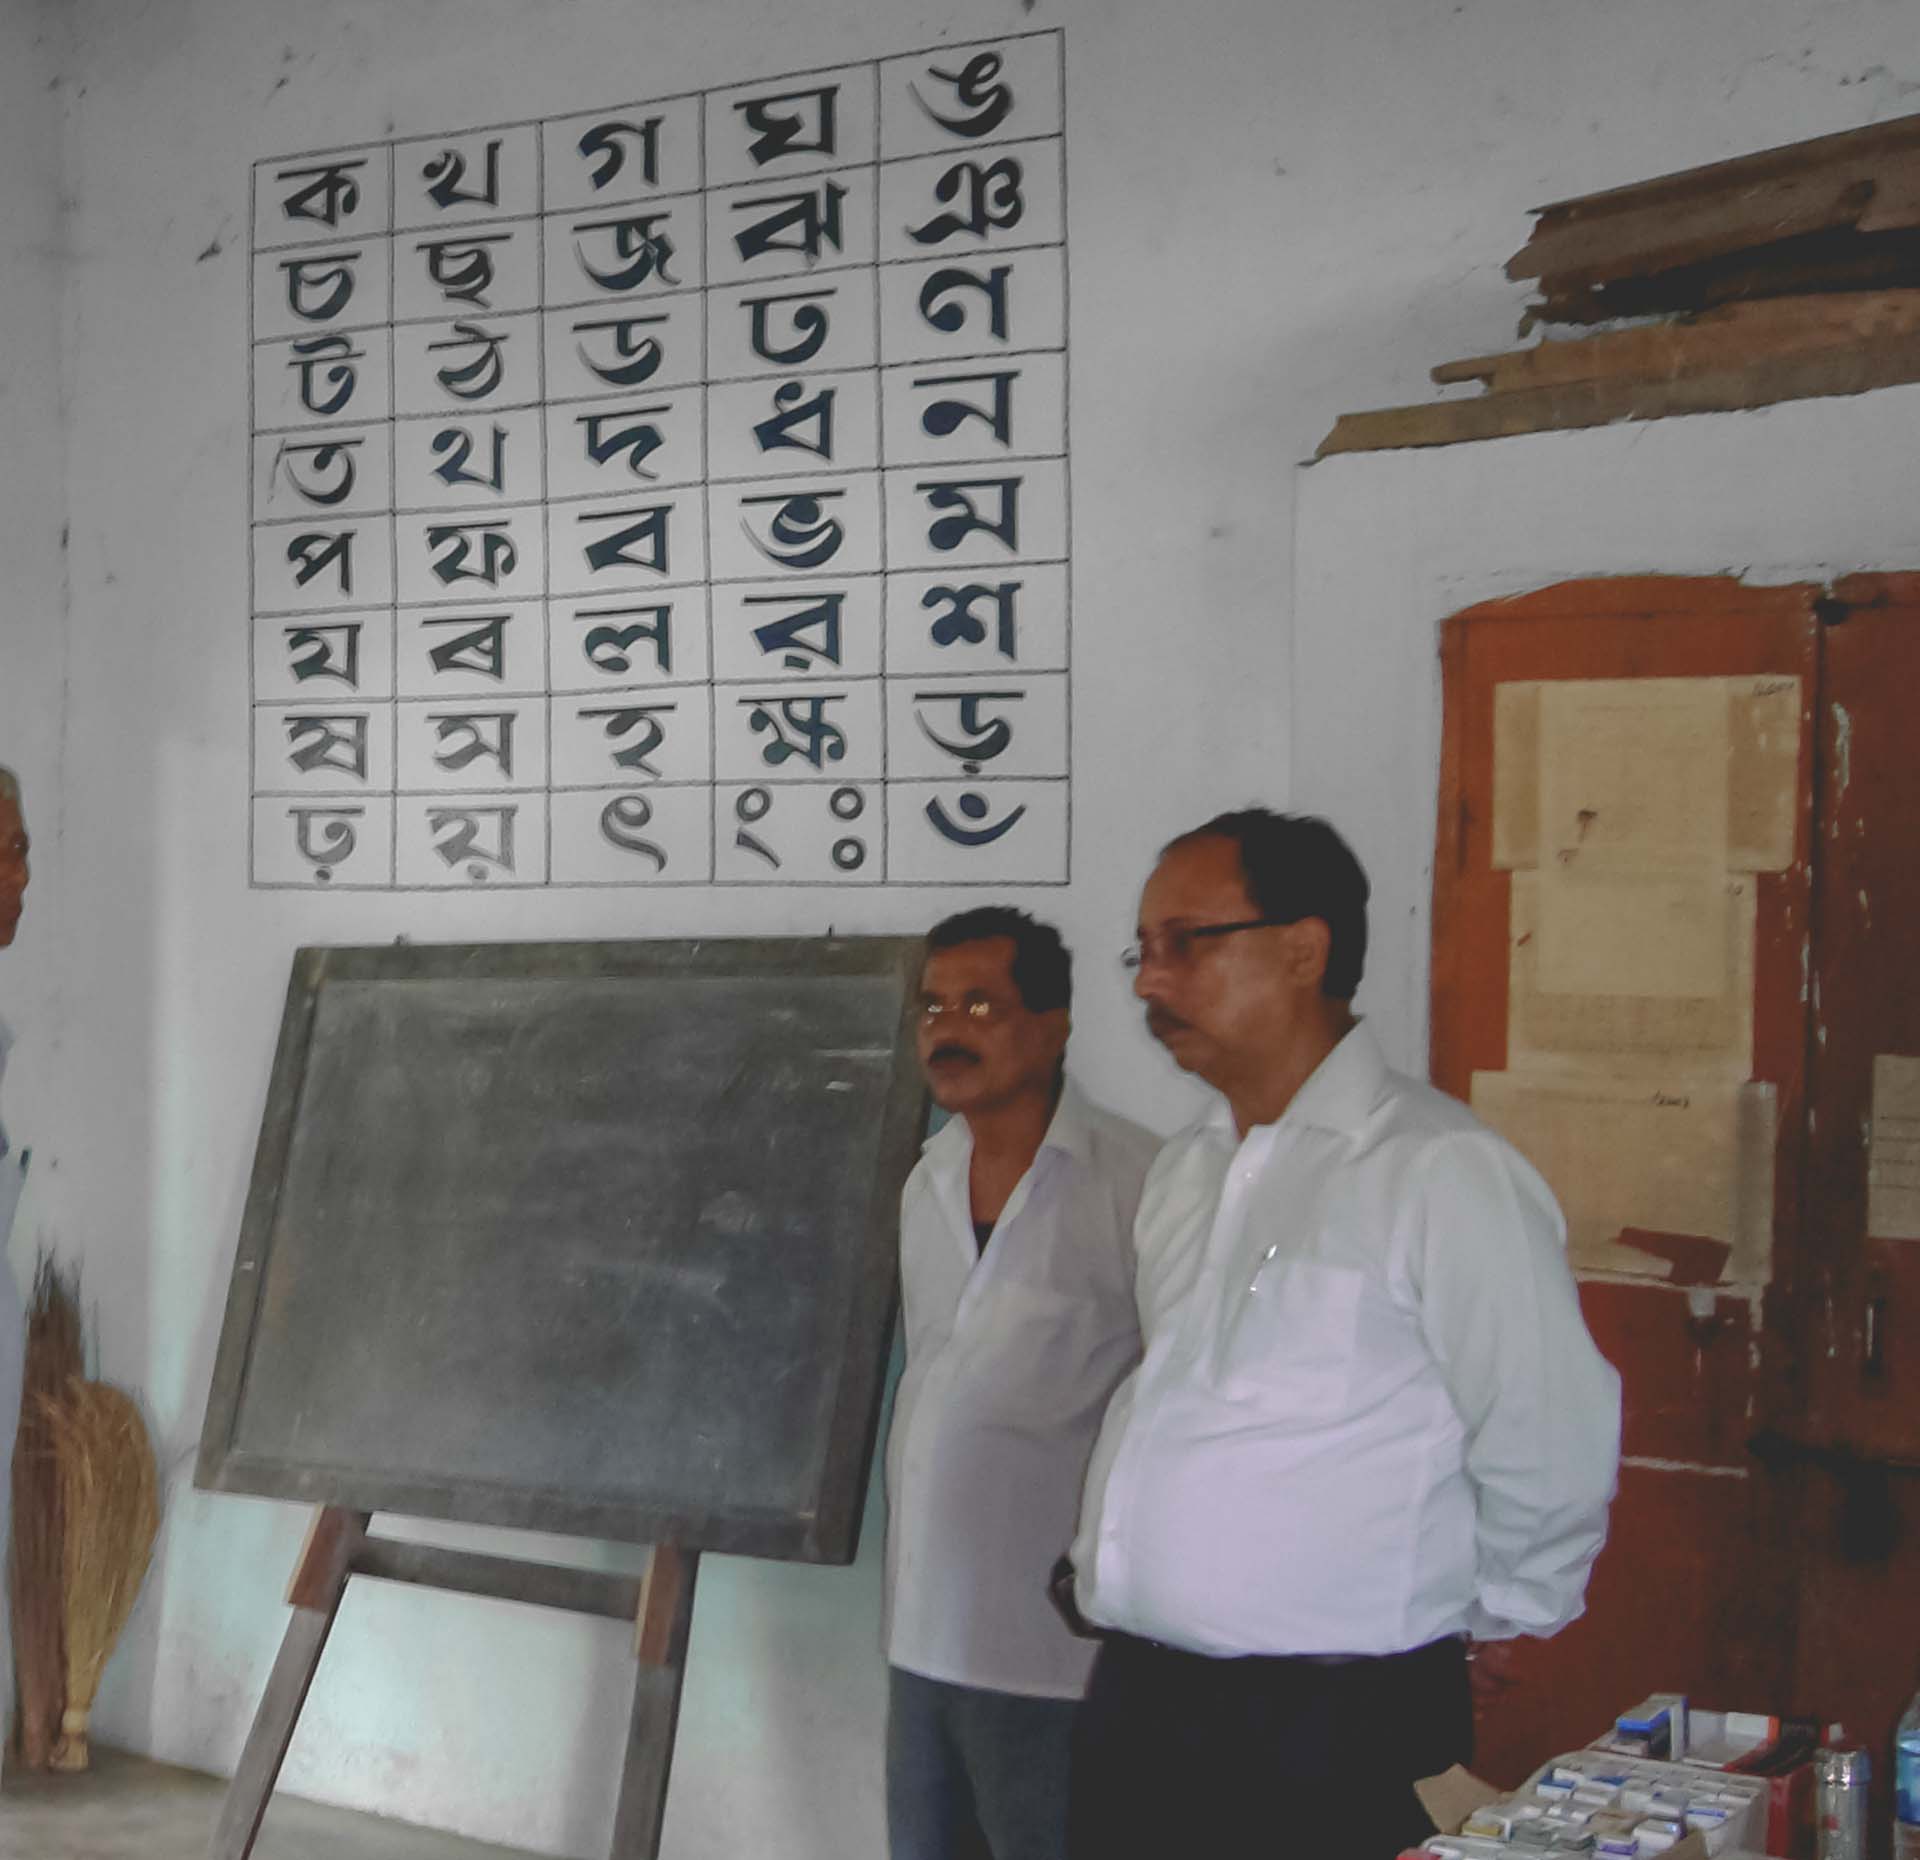 ক খ গ ঘ ঙ
চ ছ জ ঝ ঞ
ট ঠ ড ঢ ণ
ত থ দ ধ ন
প ফ ব ভ ম
য ৰ ল ৱ শ
ষ স হ ক্ষ ড়
ঢ় য় ৎ ং ঃ ঁ